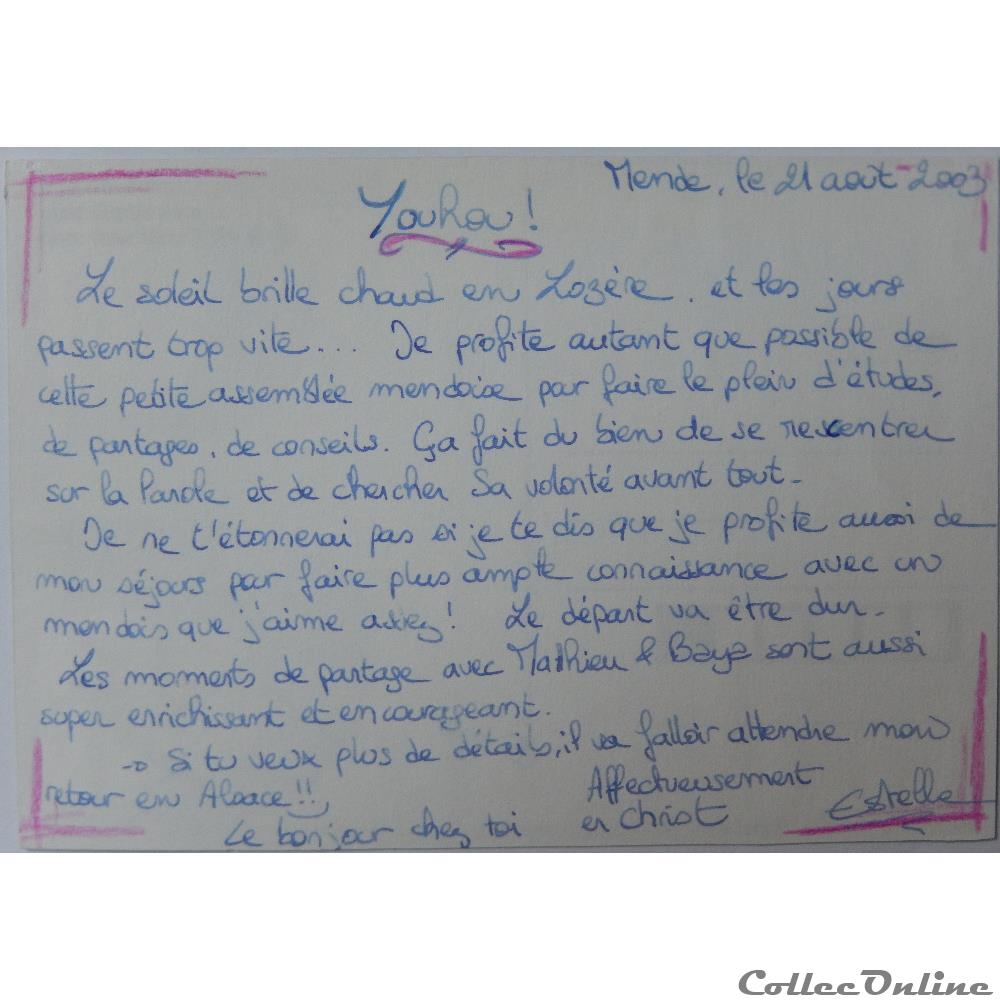 Mende, le 21 août 2003
Youhou !
Le soleil brille chaud en Lozère, et les jours
passent trop vite... Je profite autant que possible de
cette petite assemblée mendoise pour faire le plein d'études,
de partages, de conseils. Ça fait du bien de se recentrer
sur la Parole et de chercher Sa volonté avant tout.
Je ne t'étonnerai pas si je te dis que je profite aussi de
mon séjours pour faire plus ample connaissance avec un
mendois que j'aime assez ! Le départ va être dur.
Les moments de partage avec Mathieu & Baya sont aussi
super enrichissant et encourageant.
→ Si tu veux plus de détails, il va falloir attendre mon
retour en Alsace !!
Affectueusement
en Christ
Estelle
Le bonjour chez toi
CollecOnline